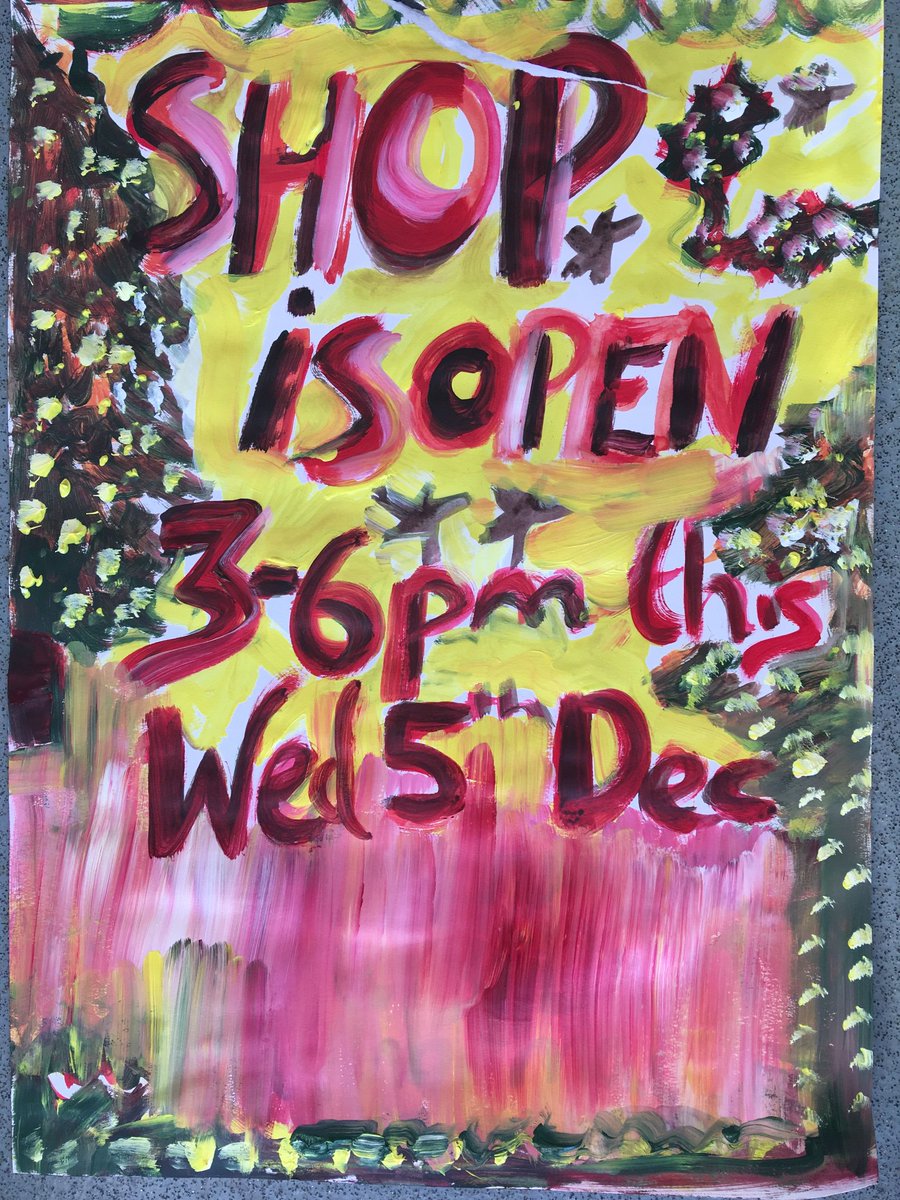 SHOP
is OPEN
3-6pm this
Wed 5th Dec